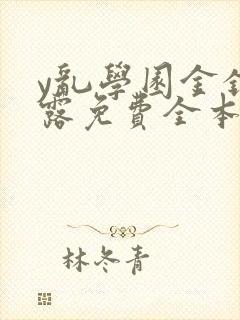 y乱學園全
露免費全本
林冬青